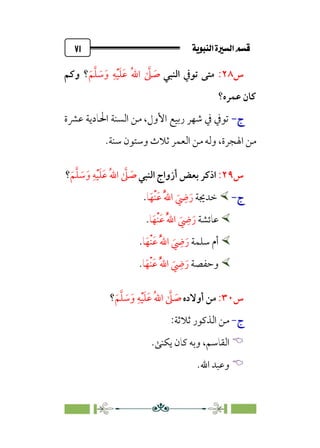 قسم السيرة النبوية
٧١
س٢٨: متى توفي النبي صَلَّى اللهُ عَلَيْهِ وَسَلَّمَ؟ وكم
كان عمره؟
ج- توفي في شهر ربيع الأول، من السنة الحادية عشرة
من الهجرة، وله من العمر ثلاث وستون سنة.
س٢٩: اذكر بعض أزواج النبي صَلَّى اللهُ عَلَيْهِ وَسَلَّمَ؟
ج- خديجة رَضِيَ اللهُ عَنْهَا.
عائشة رَضِيَ اللهُ عَنْهَا.
أم سلمة رَضِيَ اللهُ عَنْهَا.
وحفصة رَضِيَ اللهُ عَنْهَا.
س٣٠: من أولاده صَلَّى اللهُ عَلَيْهِ وَسَلَّمَ؟
ج- من الذكور ثلاثة:
القاسم، وبه كان يكنئ.
وعبد الله.